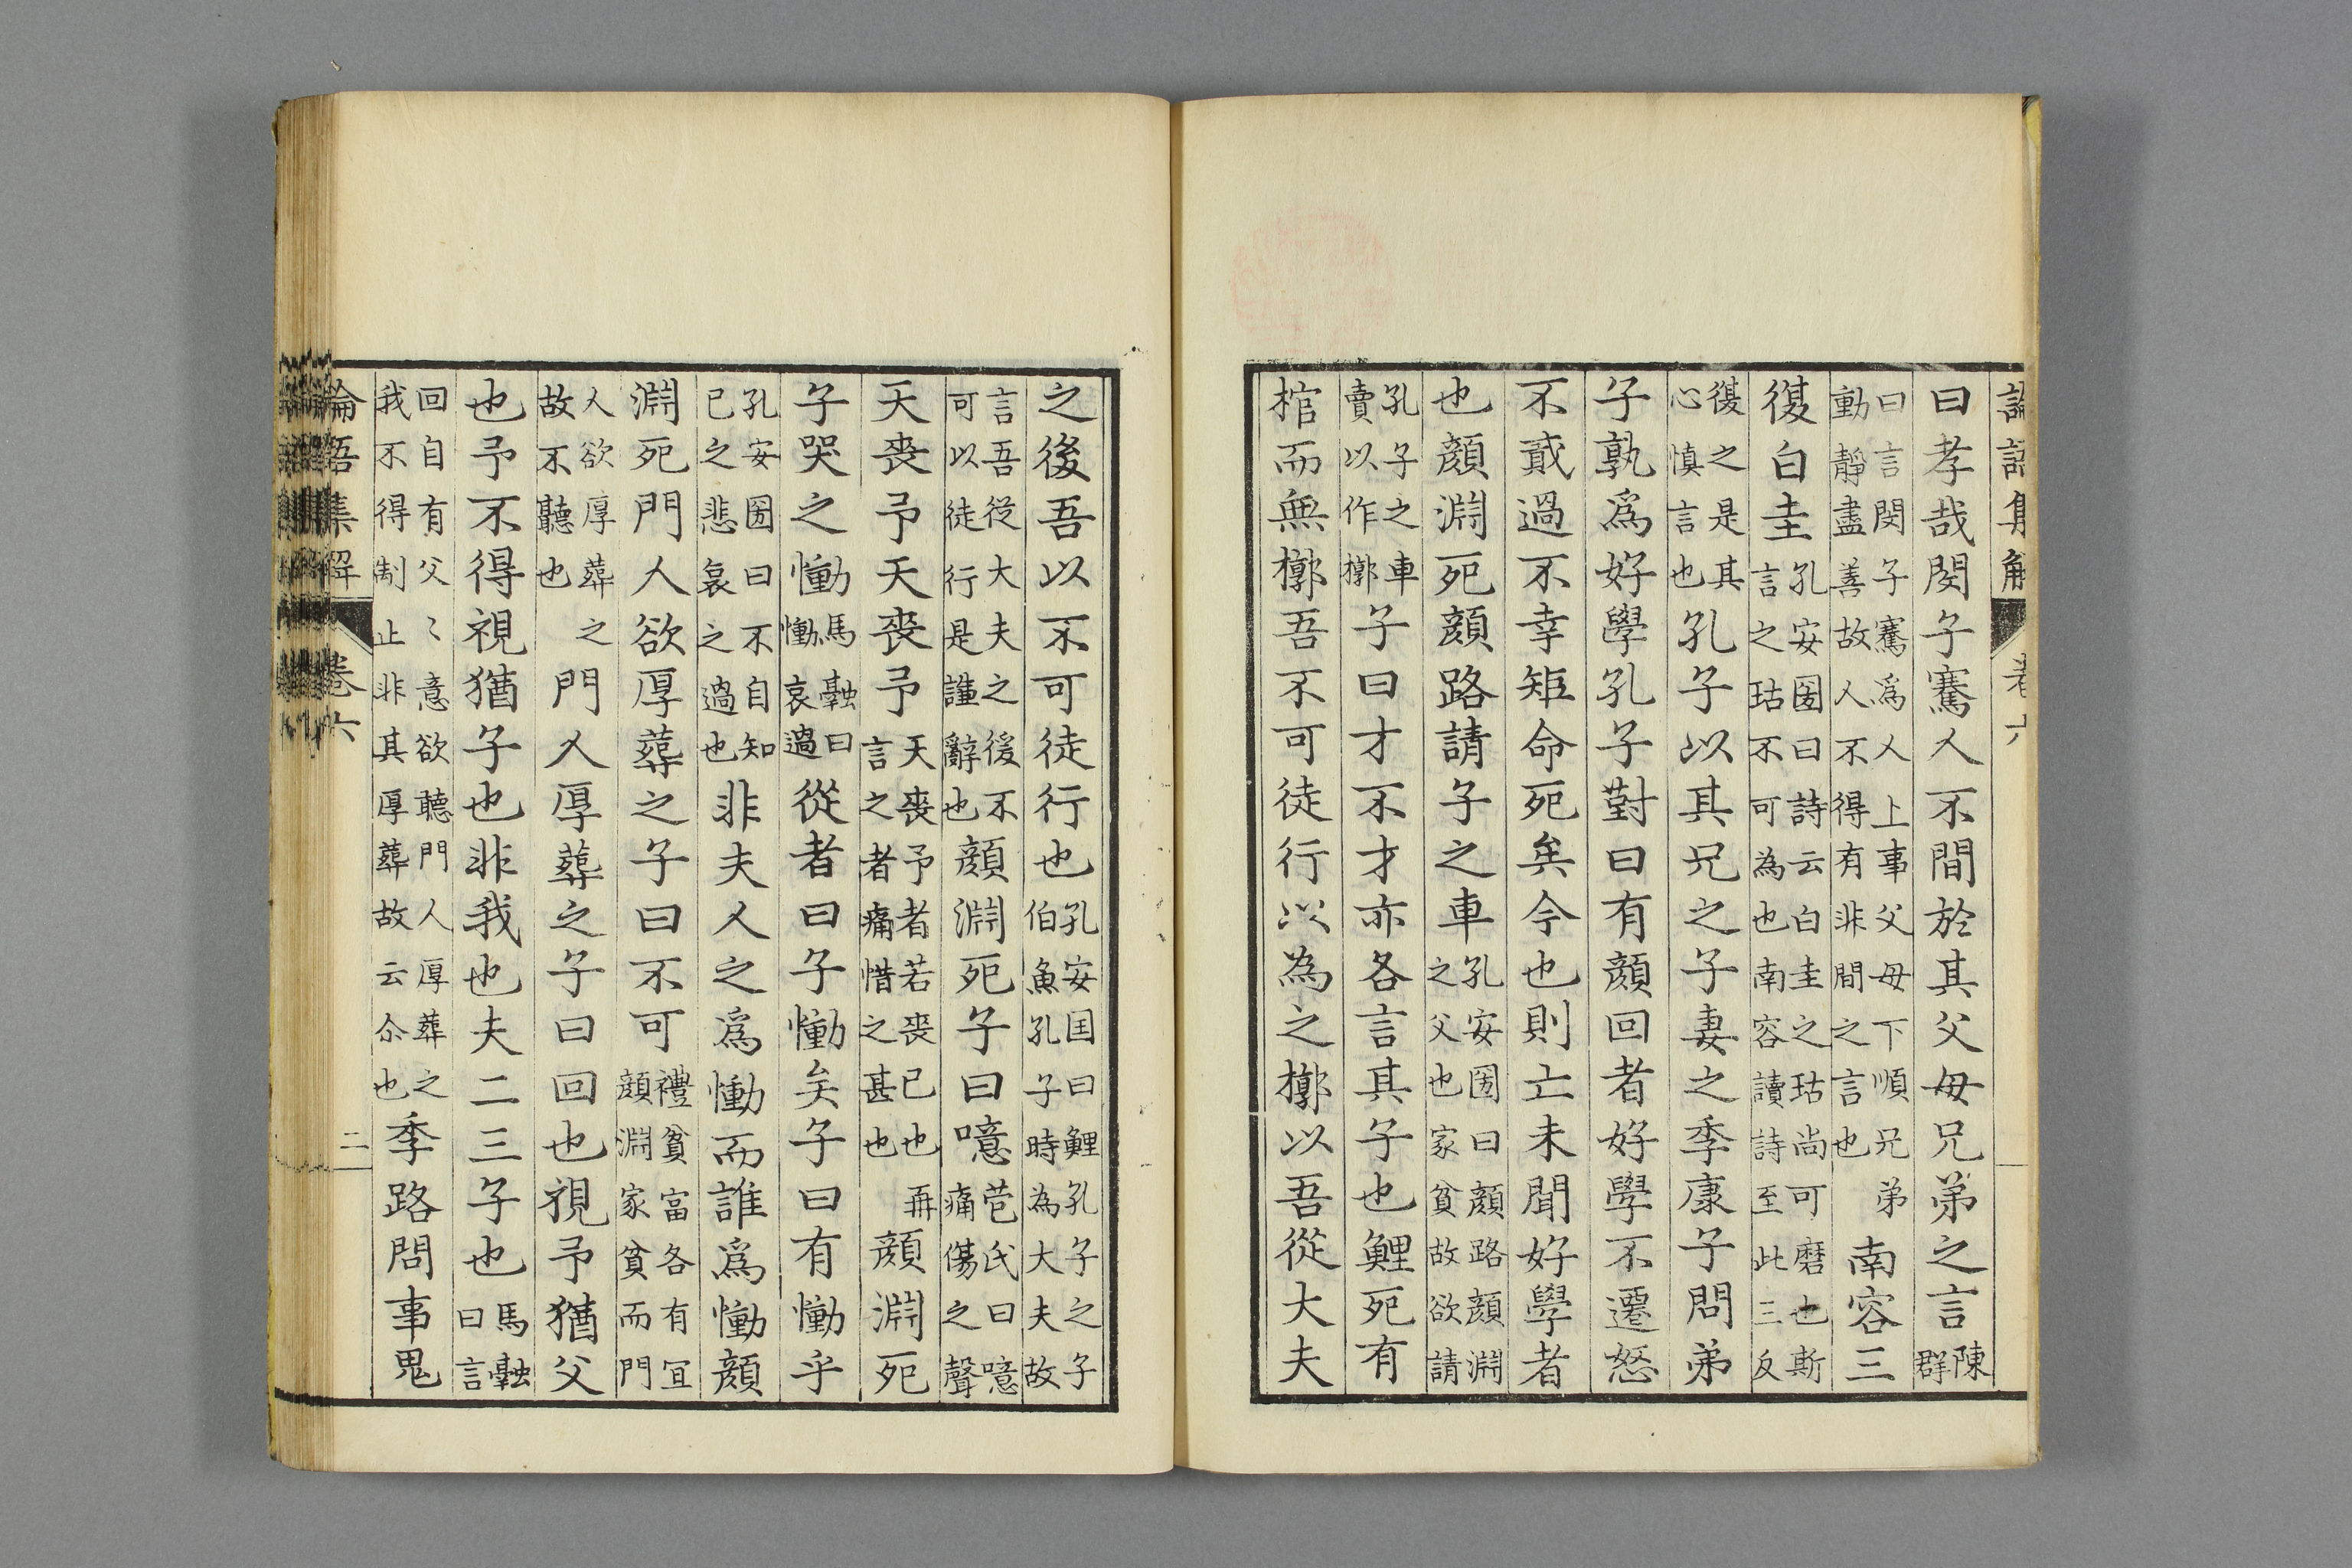 論語集解 卷六
曰孝哉閔子騫人不間於其父毋兄弟之言陳群
曰言閔子騫爲人上事父毋下順兄弟
動靜盡善故人不得有非間之言也
南容三
復白圭
孔安囻曰詩云白圭之玷尚可磨也斯
言之玷不可為也南容讀詩至此三反
復之是其
心慎言也
孔子以其兄之子妻之季康子問弟
子孰爲好學孔子對曰有顔回者好學不遷怒
不貳過不幸短命死矣今也則亡未聞好學者
也顔淵死顔路請子之車
孔安囻曰顔路顔淵
之父也家貧故欲請
孔子之車
賣以作槨
子曰才不才亦各言其子也鯉死有
棺而無槨吾不可徒行以為之槨以吾從大夫
之後吾以不可徒行也
孔安国曰鯉孔子之子
伯魚孔子時為大夫故
言吾從大夫之後不
可以徒行是謙辭也
顔淵死子曰噫
苞氏曰噫
痛傷之聲
天喪予天喪予
天喪予者若喪己也再
言之者痛惜之甚也
顔淵死
子哭之慟
馬融曰
慟哀過
從者曰子慟矣子曰有慟乎
孔安囻曰不自知
已之悲哀之過也
非夫人之爲慟而誰爲慟顔
淵死門人欲厚葬之子曰不可
禮貧富各有宜
顔淵家貧而門
人欲厚葬之
故不聽也
門人厚葬之子曰回也視予猶父
也予不得視猶子也非我也夫二三子也
馬融
曰言
回自有父〻意欲聽門人厚葬之
我不得制止非其厚葬故云尒也
季路問事鬼
論語集解 卷六 二